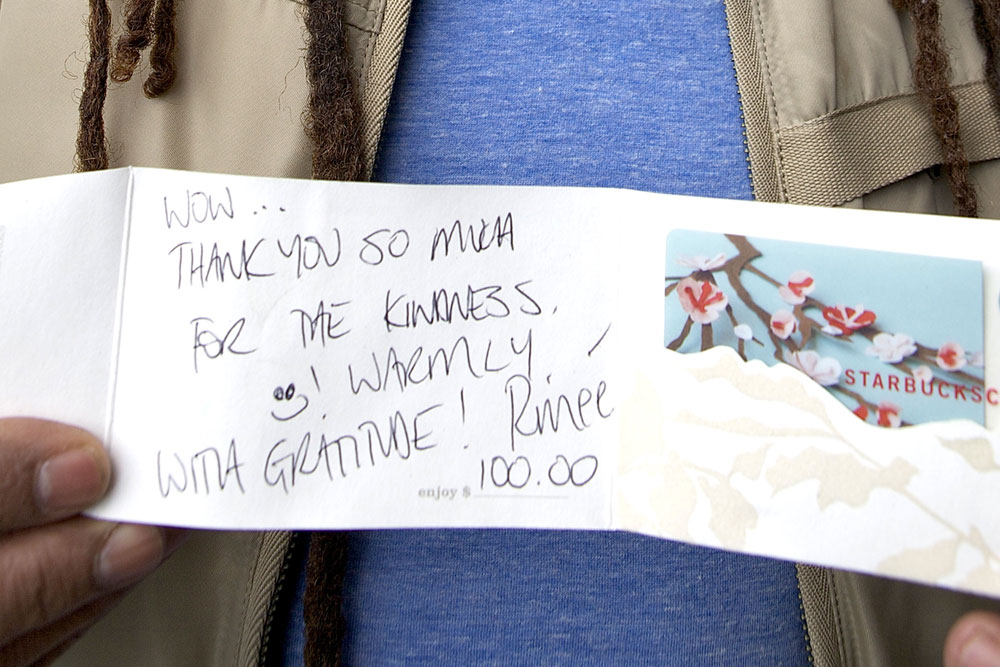 WOW ...
THANK YOU SO MUCH
FOR THE KINDNESS.
! WARMLY,
WITH GRATITUDE!
enjoy $ 100.00
STARBUCKS C